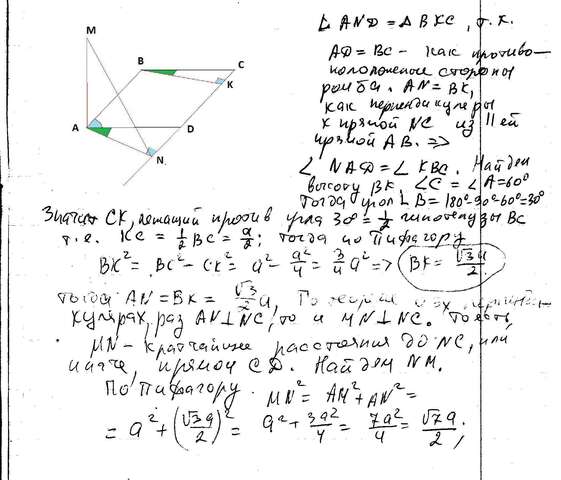 M
B
C
K
A
D
N
∆ AND = ∆ BKC, т. к.
AD = BC - как противо-
положенные стороны
ромба. AN = BK,
как перпендикуляры
к прямой NC из ||ей
прямой AB. =>
∠ NAD = ∠ KBC. Найдем
высоту BK, ∠C = ∠A = 60°
Тогда угол ∠B = 180°-90°-60°=30°
Значит CK, лежащий против угла 30° = 1/2 гипотенузы BC
т.е. KC = 1/2 BC = a/2; тогда по Пифагору
BK² = BC² - CK² = a² - a²/4 = 3/4 a² => BK = √3a/2
тогда AN = BK = √3/2 a, По теореме о 3х перпенди-
кулярах, раз AN ⊥ NC, то и MN ⊥ NC. То есть,
MN - кратчайшее расстояния до NC, или
иначе, прямой CD. Найдем NM.
По Пифагору. MN² = AM² + AN² =
= a² + (√3a/2)² = a² + 3a²/4 = 7a²/4 = √7a/2;